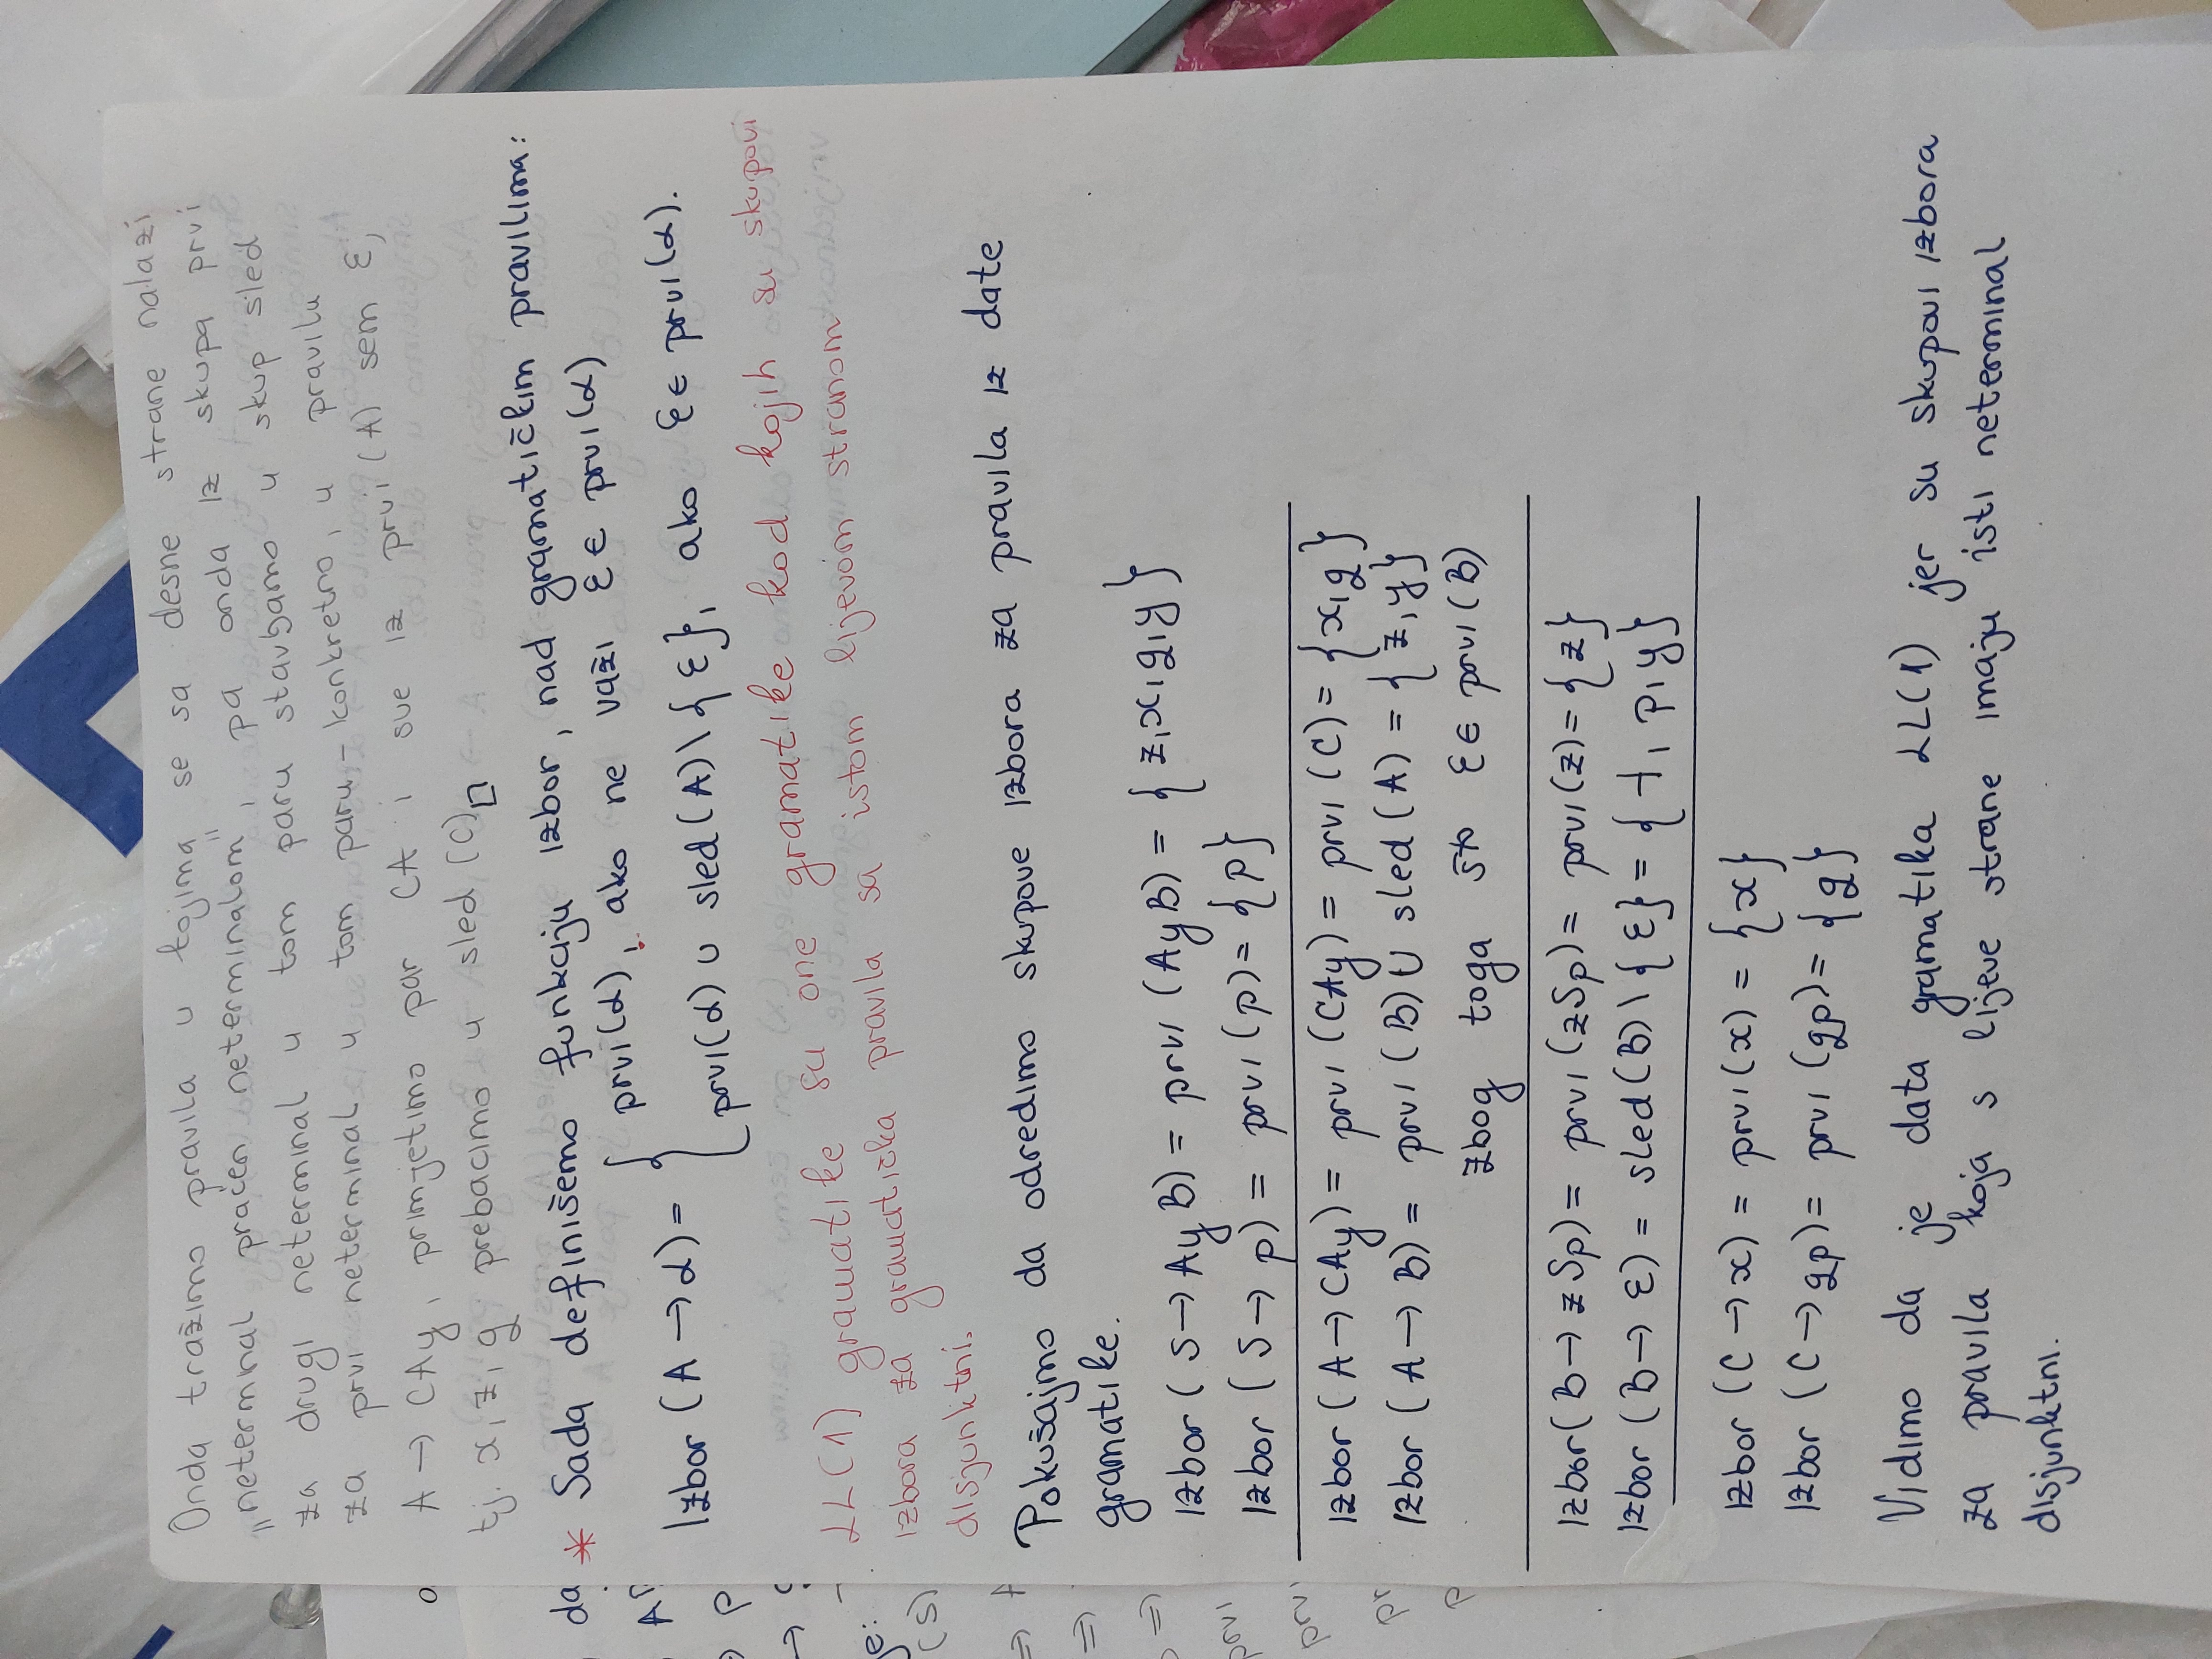 Onda tražimo pravila u kojima se sa desne strane nalazi
„neterminal praćen neterminalom", pa onda iz skupa prvi
za drugi neterminal u tom paru stavljamo u skup sled
za prvi neterminal u tom paru - konkretno, u pravilu
A → CAy, primjetimo par CA i sve iz prvi(A) sem ε,
tj. x, z, g prebacimo u sled (C).
* Sada definišemo funkciju izbor, nad gramatičkim pravilima:
prvi(α), ako ne važi ε ∈ prvi(α)
Izbor (A → α) = {
prvi(α) ∪ sled(A) \ {ε}, ako ε ∈ prvi(α).
LL(1) gramatike su one gramatike kod kojih su skupovi
izbora za gramatička pravila sa istom lijevom stranom
disjunktni.
Pokušajmo da odredimo skupove izbora za pravila iz date
gramatike.
Izbor (S → AyB) = prvi (AyB) = {z, x, g, y}
Izbor (S → p) = prvi (p) = {p}
Izbor (A → CAy) = prvi (CAy) = prvi (C) = {x, g}
Izbor (A → B) = prvi (B) ∪ sled (A) = {z, y}
zbog toga što ε ∈ prvi (B)
Izbor (B → zSp) = prvi (zSp) = prvi (z) = {z}
Izbor (B → ε) = sled (B) \ {ε} = {⊣, p, y}
Izbor (C → x) = prvi (x) = {x}
Izbor (C → gp) = prvi (gp) = {g}
Vidimo da je data gramatika LL(1) jer su skupovi izbora
za pravila koja s lijeve strane imaju isti neterminal
disjunktni.